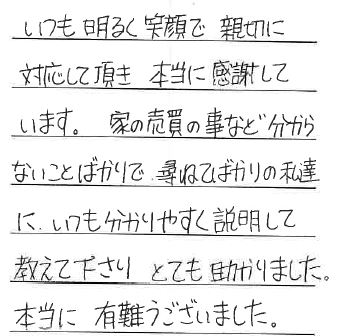 いつも明るく笑顔で 親切に
対応して頂き 本当に感謝して
います。 家の売買の事など分から
ないことばかりで、尋ねてばかりの私達
に、いつも分かりやすく説明して
教えて下さり とても助かりました。
本当に 有難うございました。